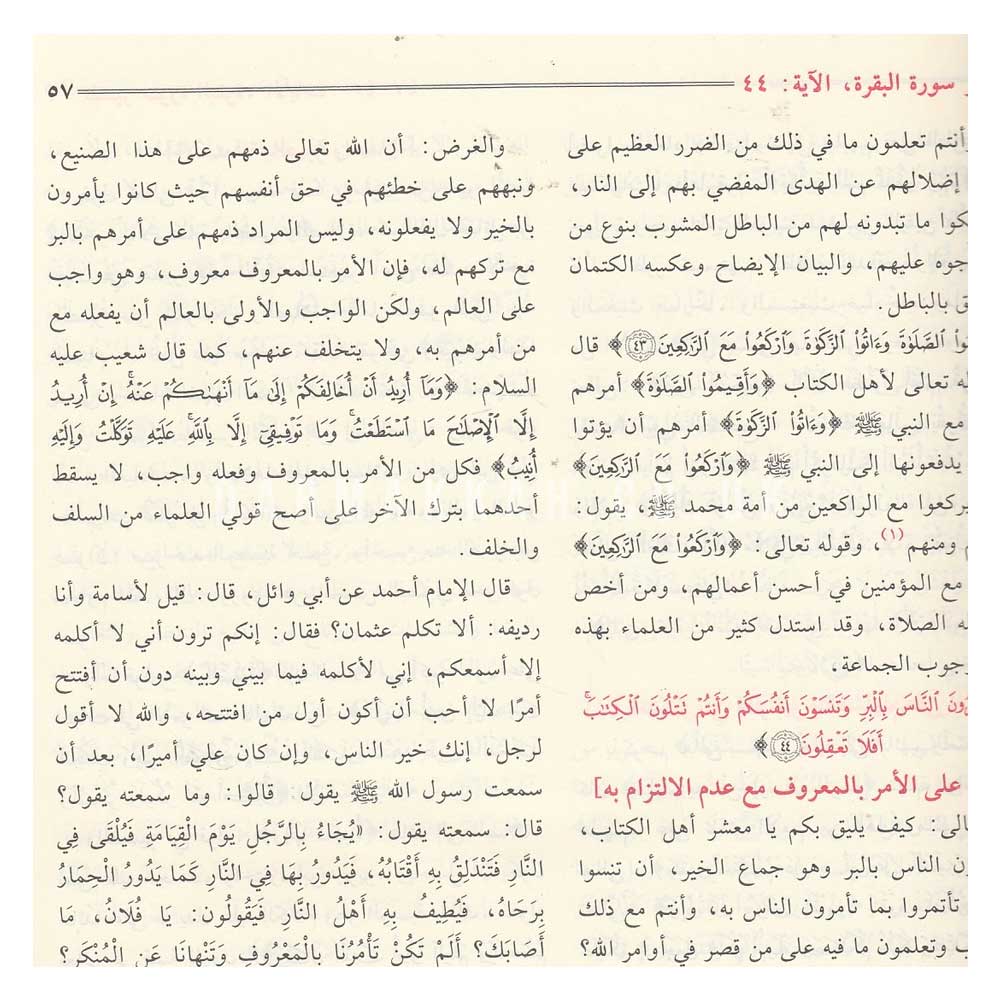 سورة البقرة، الآية: ٤٤
٥٧
وأنتم تعلمون ما في ذلك من الضرر العظيم على
إضلالهم عن الهدى المفضي بهم إلى النار،
ما تبدونه لهم من الباطل المشوب بنوع من
عليهم، والبيان الإيضاح وعكسه الكتمان
بالباطل.
ٱلصَّلَوٰةَ وَءَاتُوا۟ ٱلزَّكَوٰةَ وَٱرْكَعُوا۟ مَعَ ٱلرَّٰكِعِينَ ٤٣﴾ قال
تعالى لأهل الكتاب ﴿وَأَقِيمُوا۟ ٱلصَّلَوٰةَ﴾ أمرهم
مع النبي ﷺ ﴿وَءَاتُوا۟ ٱلزَّكَوٰةَ﴾ أمرهم أن يؤتوا
يدفعونها إلى النبي ﷺ ﴿وَٱرْكَعُوا۟ مَعَ ٱلرَّٰكِعِينَ﴾
يركعوا مع الراكعين من أمة محمد ﷺ، يقول:
ومنهم(١)، وقوله تعالى: ﴿وَٱرْكَعُوا۟ مَعَ ٱلرَّٰكِعِينَ﴾
مع المؤمنين في أحسن أعمالهم، ومن أخص
الصلاة، وقد استدل كثير من العلماء بهذه
وجوب الجماعة.
ٱلنَّاسَ بِٱلْبِرِّ وَتَنسَوْنَ أَنفُسَكُمْ وَأَنتُمْ تَتْلُونَ ٱلْكِتَٰبَ ۚ
أَفَلَا تَعْقِلُونَ ٤٤﴾
على الأمر بالمعروف مع عدم الالتزام به]
كيف يليق بكم يا معشر أهل الكتاب،
الناس بالبر وهو جماع الخير، أن تنسوا
تأتمروا بما تأمرون الناس به، وأنتم مع ذلك
وتعلمون ما فيه على من قصر في أوامر الله؟
والغرض: أن الله تعالى ذمهم على هذا الصنيع،
ونبههم على خطئهم في حق أنفسهم حيث كانوا يأمرون
بالخير ولا يفعلونه، وليس المراد ذمهم على أمرهم بالبر
مع تركهم له، فإن الأمر بالمعروف معروف، وهو واجب
على العالم، ولكن الواجب والأولى بالعالم أن يفعله مع
من أمرهم به، ولا يتخلف عنهم، كما قال شعيب عليه
السلام: ﴿وَمَآ أُرِيدُ أَنْ أُخَالِفَكُمْ إِلَىٰ مَآ أَنْهَىٰكُمْ عَنْهُ ۚ إِنْ أُرِيدُ
إِلَّا ٱلْإِصْلَٰحَ مَا ٱسْتَطَعْتُ ۚ وَمَا تَوْفِيقِىٓ إِلَّا بِٱللَّهِ ۚ عَلَيْهِ تَوَكَّلْتُ وَإِلَيْهِ
أُنِيبُ﴾ فكل من الأمر بالمعروف وفعله واجب، لا يسقط
أحدهما بترك الآخر على أصح قولي العلماء من السلف
والخلف.
قال الإمام أحمد عن أبي وائل، قال: قيل لأسامة وأنا
رديفه: ألا تكلم عثمان؟ فقال: إنكم ترون أني لا أكلمه
إلا أسمعكم، إني لأكلمه فيما بيني وبينه دون أن أفتتح
أمرًا لا أحب أن أكون أول من افتتحه، والله لا أقول
لرجل، إنك خير الناس، وإن كان علي أميرًا، بعد أن
سمعت رسول الله ﷺ يقول: قالوا: وما سمعته يقول؟
قال: سمعته يقول: «يُجَاءُ بِالرَّجُلِ يَوْمَ الْقِيَامَةِ فَيُلْقَى فِي
النَّارِ فَتَنْدَلِقُ بِهِ أَقْتَابُهُ، فَيَدُورُ بِهَا فِي النَّارِ كَمَا يَدُورُ الْحِمَارُ
بِرَحَاهُ، فَيُطِيفُ بِهِ أَهْلُ النَّارِ فَيَقُولُونَ: يَا فُلَانُ، مَا
أَصَابَكَ؟ أَلَمْ تَكُنْ تَأْمُرُنَا بِالْمَعْرُوفِ وَتَنْهَانَا عَنِ الْمُنْكَرِ؟